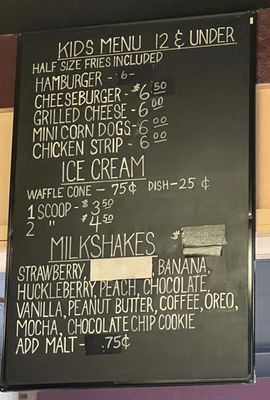 KIDS MENU 12 & UNDER
HALF SIZE FRIES INCLUDED
HAMBURGER - 6-
CHEESEBURGER - $6.50
GRILLED CHEESE - 6.00
MINI CORN DOGS - 6.00
CHICKEN STRIP - 6.00
ICE CREAM
WAFFLE CONE - 75¢ DISH - 25¢
1 SCOOP - $3.50
2 " $4.50
MILKSHAKES $
STRAWBERRY, BANANA,
HUCKLEBERRY, PEACH, CHOCOLATE,
VANILLA, PEANUT BUTTER, COFFEE, OREO,
MOCHA, CHOCOLATE CHIP COOKIE
ADD MALT - .75¢